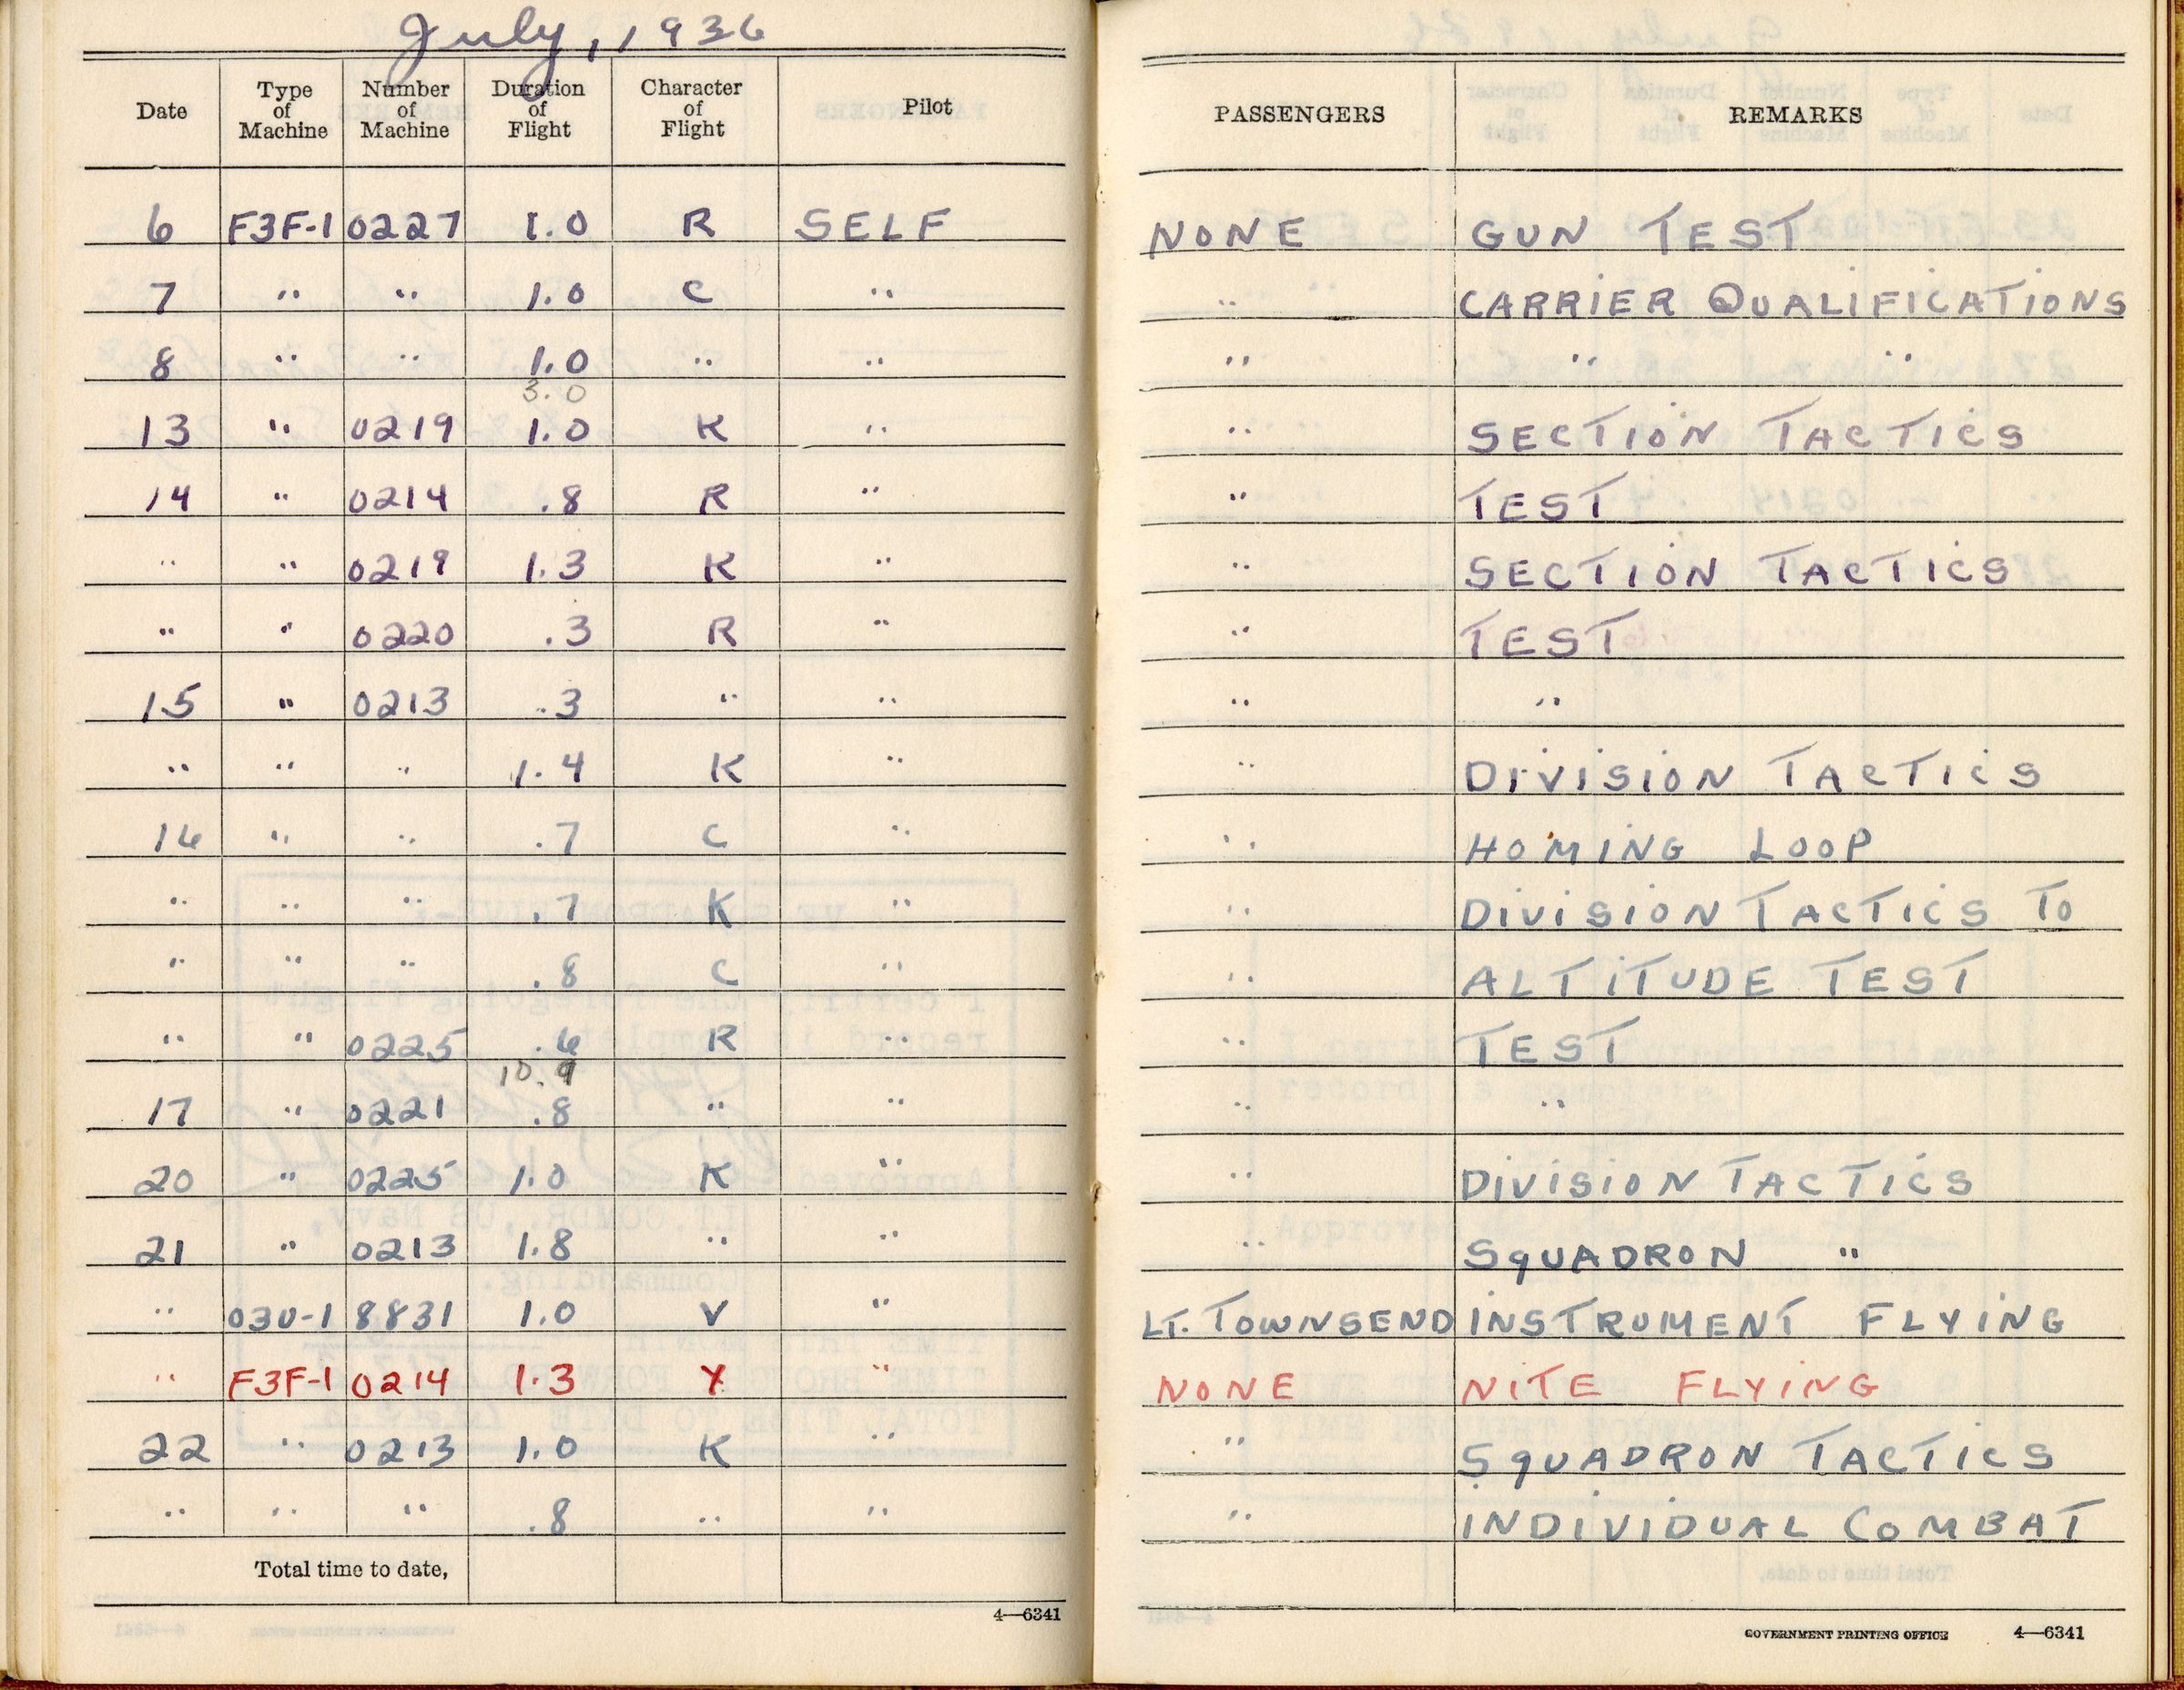 July, 1936
Date Type of Machine Number of Machine Duration of Flight Character of Flight Pilot PASSENGERS REMARKS
6 F3F-1 0227 1.0 R SELF NONE GUN TEST
7 " " 1.0 C " " CARRIER QUALIFICATIONS
8 " " 1.0 " " " " "
3.0
13 " 0219 1.0 K " " SECTION TACTICS
14 " 0214 .8 R " " TEST
" " 0219 1.3 K " " SECTION TACTICS
" " 0220 .3 R " " TEST
15 " 0213 .3 " " " "
" " " 1.4 K " " DIVISION TACTICS
16 " " .7 C " " HOMING LOOP
" " " .7 K " " DIVISION TACTICS TO
" " " .8 C " " ALTITUDE TEST
" " 0225 .6 R " " TEST
10.9
17 " 0221 .8 " " " "
20 " 0225 1.0 K " " DIVISION TACTICS
21 " 0213 1.8 " " " SQUADRON "
" O3U-1 8831 1.0 V " LT. TOWNSEND INSTRUMENT FLYING
" F3F-1 0214 1.3 Y " NONE NITE FLYING
22 " 0213 1.0 K " " SQUADRON TACTICS
" " " .8 " " " INDIVIDUAL COMBAT
Total time to date,
4—6341
GOVERNMENT PRINTING OFFICE 4—6341